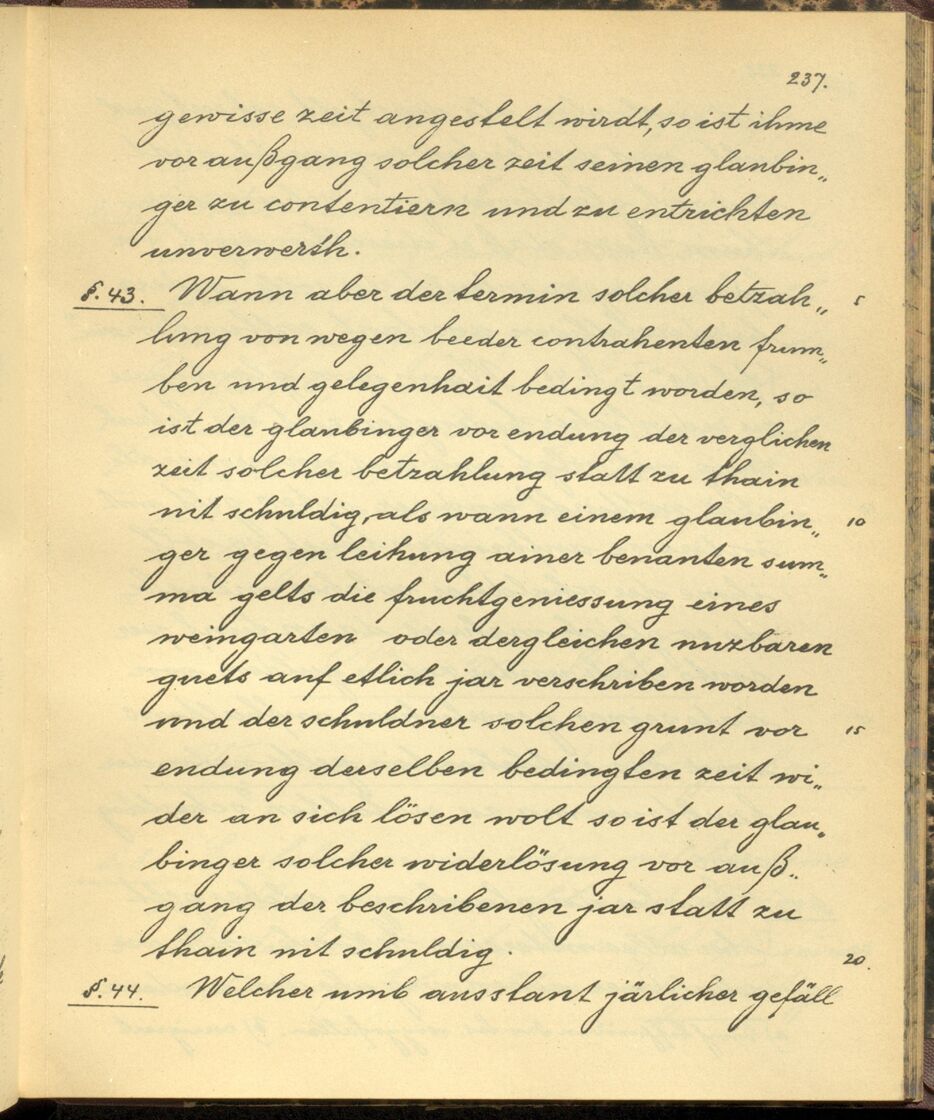 237.
gewisse zeit angestelt wirdt, so ist ihme
vor außgang solcher zeit seinen glaubin„
ger zu contentiern und zu entrichten
unverwersh.
§. 43. Wann aber der termin solcher betzah„ 5
lung von wegen beeder contrahenten frum„
ben und gelegenhait bedingt worden, so
ist der glaubinger vor endung der verglichen
zeit solcher betzahlung statt zu thain
nit schuldig, als wann einem glaubin„ 10
ger gegen leihung ainer benanten sum„
ma gelts die fruchtgeniessung eines
weingarten oder dergleichen nuzbaren
guets auf etlich jar verschriben worden
und der schuldner solchen grunt vor 15
endung derselben bedingten zeit wi„
der an sich lösen wolt so ist der glau„
binger solcher widerlösung vor auß„
gang der beschribenen jar statt zu
thain nit schuldig. 20.
§. 44. Welcher umb ausstant järlicher gefäll